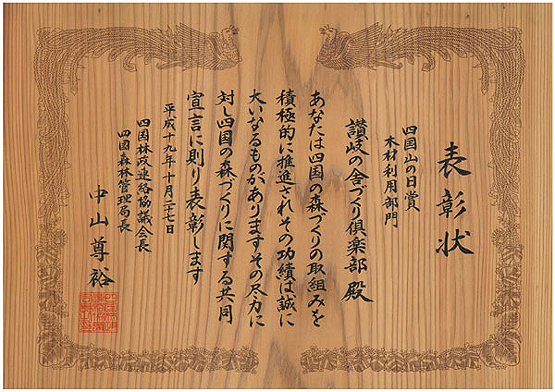 表彰状
四国山の日賞
木材利用部門
讃岐の舎づくり倶楽部 殿
あなたは四国の森づくりの取組みを
積極的に推進されその功績は誠に
大いなるものがありますその尽力に
対し四国の森づくりに関する共同
宣言に則り表彰します
平成十九年十月二十七日
四国林政連絡協議会長
四国森林管理局長
中山尊裕